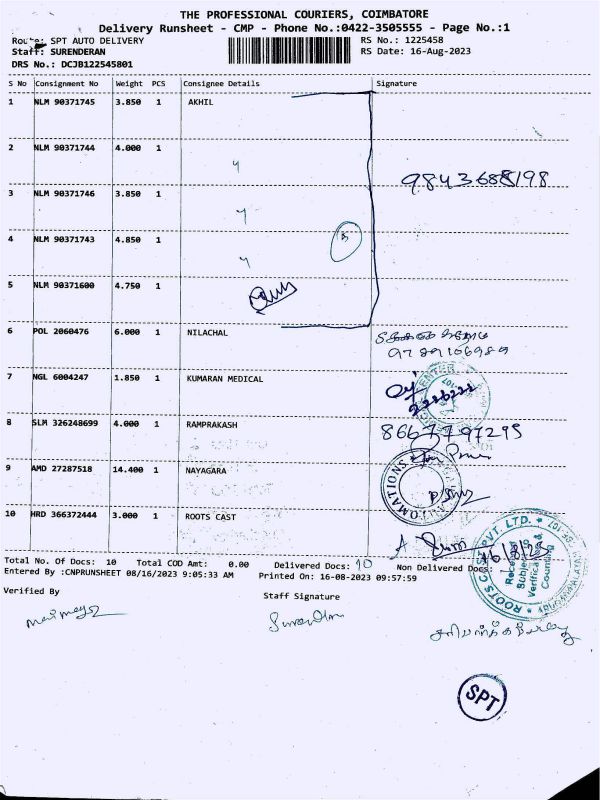 THE PROFESSIONAL COURIERS, COIMBATORE
Delivery Runsheet - CMP - Phone No.:0422-3505555 - Page No.:1
Route: SPT AUTO DELIVERY
RS No.: 1225458
Staff: SURENDERAN
RS Date: 16-Aug-2023
DRS No.: DCJB122545801
S No Consignment No Weight PCS Consignee Details Signature
1 NLM 90371745 3.850 1 AKHIL
2 NLM 90371744 4.000 1
9843688198
3 NLM 90371746 3.850 1
4 NLM 90371743 4.850 1
5
5 NLM 90371600 4.750 1
6 POL 2060476 6.000 1 NILACHAL
9789106989
7 NGL 6004247 1.850 1 KUMARAN MEDICAL
8 SLM 326248699 4.000 1 RAMPRAKASH 8667797295
9 AMD 27287518 14.400 1 NAYAGARA
10 HRD 366372444 3.000 1 ROOTS CAST
16/8/23
Total No. Of Docs: 10 Total COD Amt: 0.00 Delivered Docs: 10 Non Delivered Docs:
Entered By :CNPRUNSHEET 08/16/2023 9:05:33 AM Printed On: 16-08-2023 09:57:59
Verified By Staff Signature
SPT